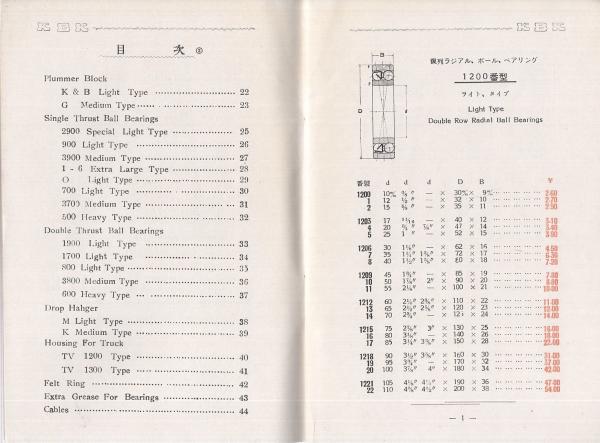 KBK
目 次 ②
Plummer Block
K & B Light Type 22
G Medium Type 23
Single Thrust Ball Bearings
2900 Special Light Type 25
900 Light Type 26
3900 Medium Type 27
1 - 6 Extra Large Type 28
O Light Type 29
700 Light Type 30
3700 Medium Type 31
500 Heavy Type 32
Double Thrust Ball Bearings
1900 Light Type 33
1700 Light Type 34
800 Light Type 35
3800 Medium Type 36
600 Heavy Type 37
Drop Hahger
M Light Type 38
K Medium Type 39
Housing For Truck
TV 1200 Type 40
TV 1300 Type 41
Felt Ring 42
Extra Grease For Bearings 43
Cables 44
KBK
複列ラジアル、ボール、ベアリング
1200番型
ライト、タイプ
Light Type
Double Row Radial Ball Bearings
B
D
番型 d d d D B ¥
1200 10 — × 30 × 9 2.60
1 12 ½" — × 32 × 10 2.70
2 15 — × 35 × 11 2.90
1203 17 — × 40 × 12 3.10
4 20 ¾" ⅞" × 47 × 14 3.40
5 25 1" — × 52 × 15 3.90
1206 30 — × 62 × 16 4.50
7 35 × 72 × 17
8 40 × 80 × 18 7.20
1209 45 — × 85 × 19
10 50 2" × 90 × 20
11 55 — × 100 × 21 10.00
1212 60 × 110 × 22 11.00
13 65 × 120 × 23 12.00
14 70 — × 125 × 24 14.00
1215 75 3" × 130 × 25 16.00
16 80 — × 140 × 26 18.00
17 85 × 150 × 28 22.00
1218 90 × 160 × 30 31.00
19 95 — × 170 × 32 37.00
20 100 4" × 180 × 34 42.00
1221 105 × 190 × 36 47.00
22 110 × 200 × 38 54.00
— 1 —